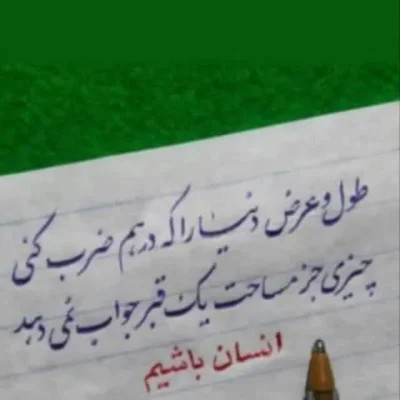 طول و عرض دنیا را که در هم ضرب کنی
چیزی جز مساحت یک قبر جواب نمی دهد
انسان باشیم